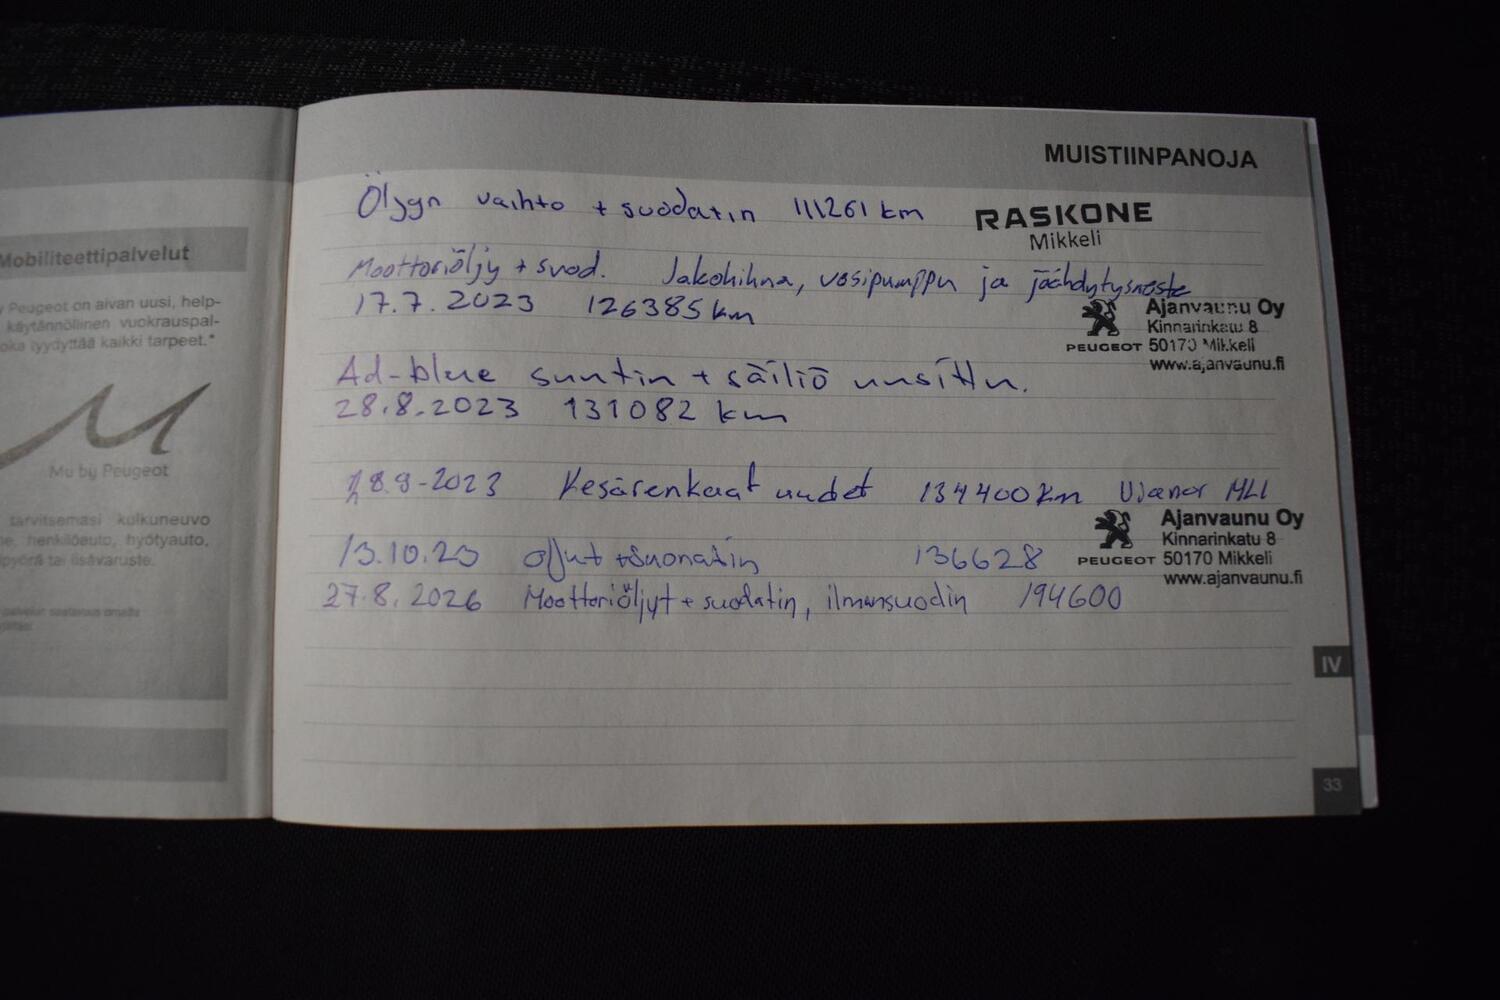 Mobiliteettipalvelut
Peugeot on aivan uusi, help-
käytännöllinen vuokrauspal-
oka tyydyttää kaikki tarpeet.*
Mu by Peugeot
tarvitsemasi kulkuneuvo
ne, henkilöauto, hyötyauto,
pyörä tai lisävaruste.
MUISTIINPANOJA
Öljyn vaihto + suodatin 111261 km
RASKONE
Mikkeli
Moottoriöljy + suod. Jakohihna, vesipumppu ja jäähdytysneste
17.7.2023 126385 km
Ajanvaunu Oy
Kinnarinkatu 8
PEUGEOT 50170 Mikkeli
www.ajanvaunu.fi
Ad-blue suutin + säiliö uusittu.
28.8.2023 131082 km
18.9-2023 Kesärenkaat uudet 134400 km MLI
Ajanvaunu Oy
Kinnarinkatu 8
PEUGEOT 50170 Mikkeli
www.ajanvaunu.fi
13.10.23 öljyt + suodatin 136628
27.8.2026 Moottoriöljyt + suodatin, ilmansuodin 194600
IV
33